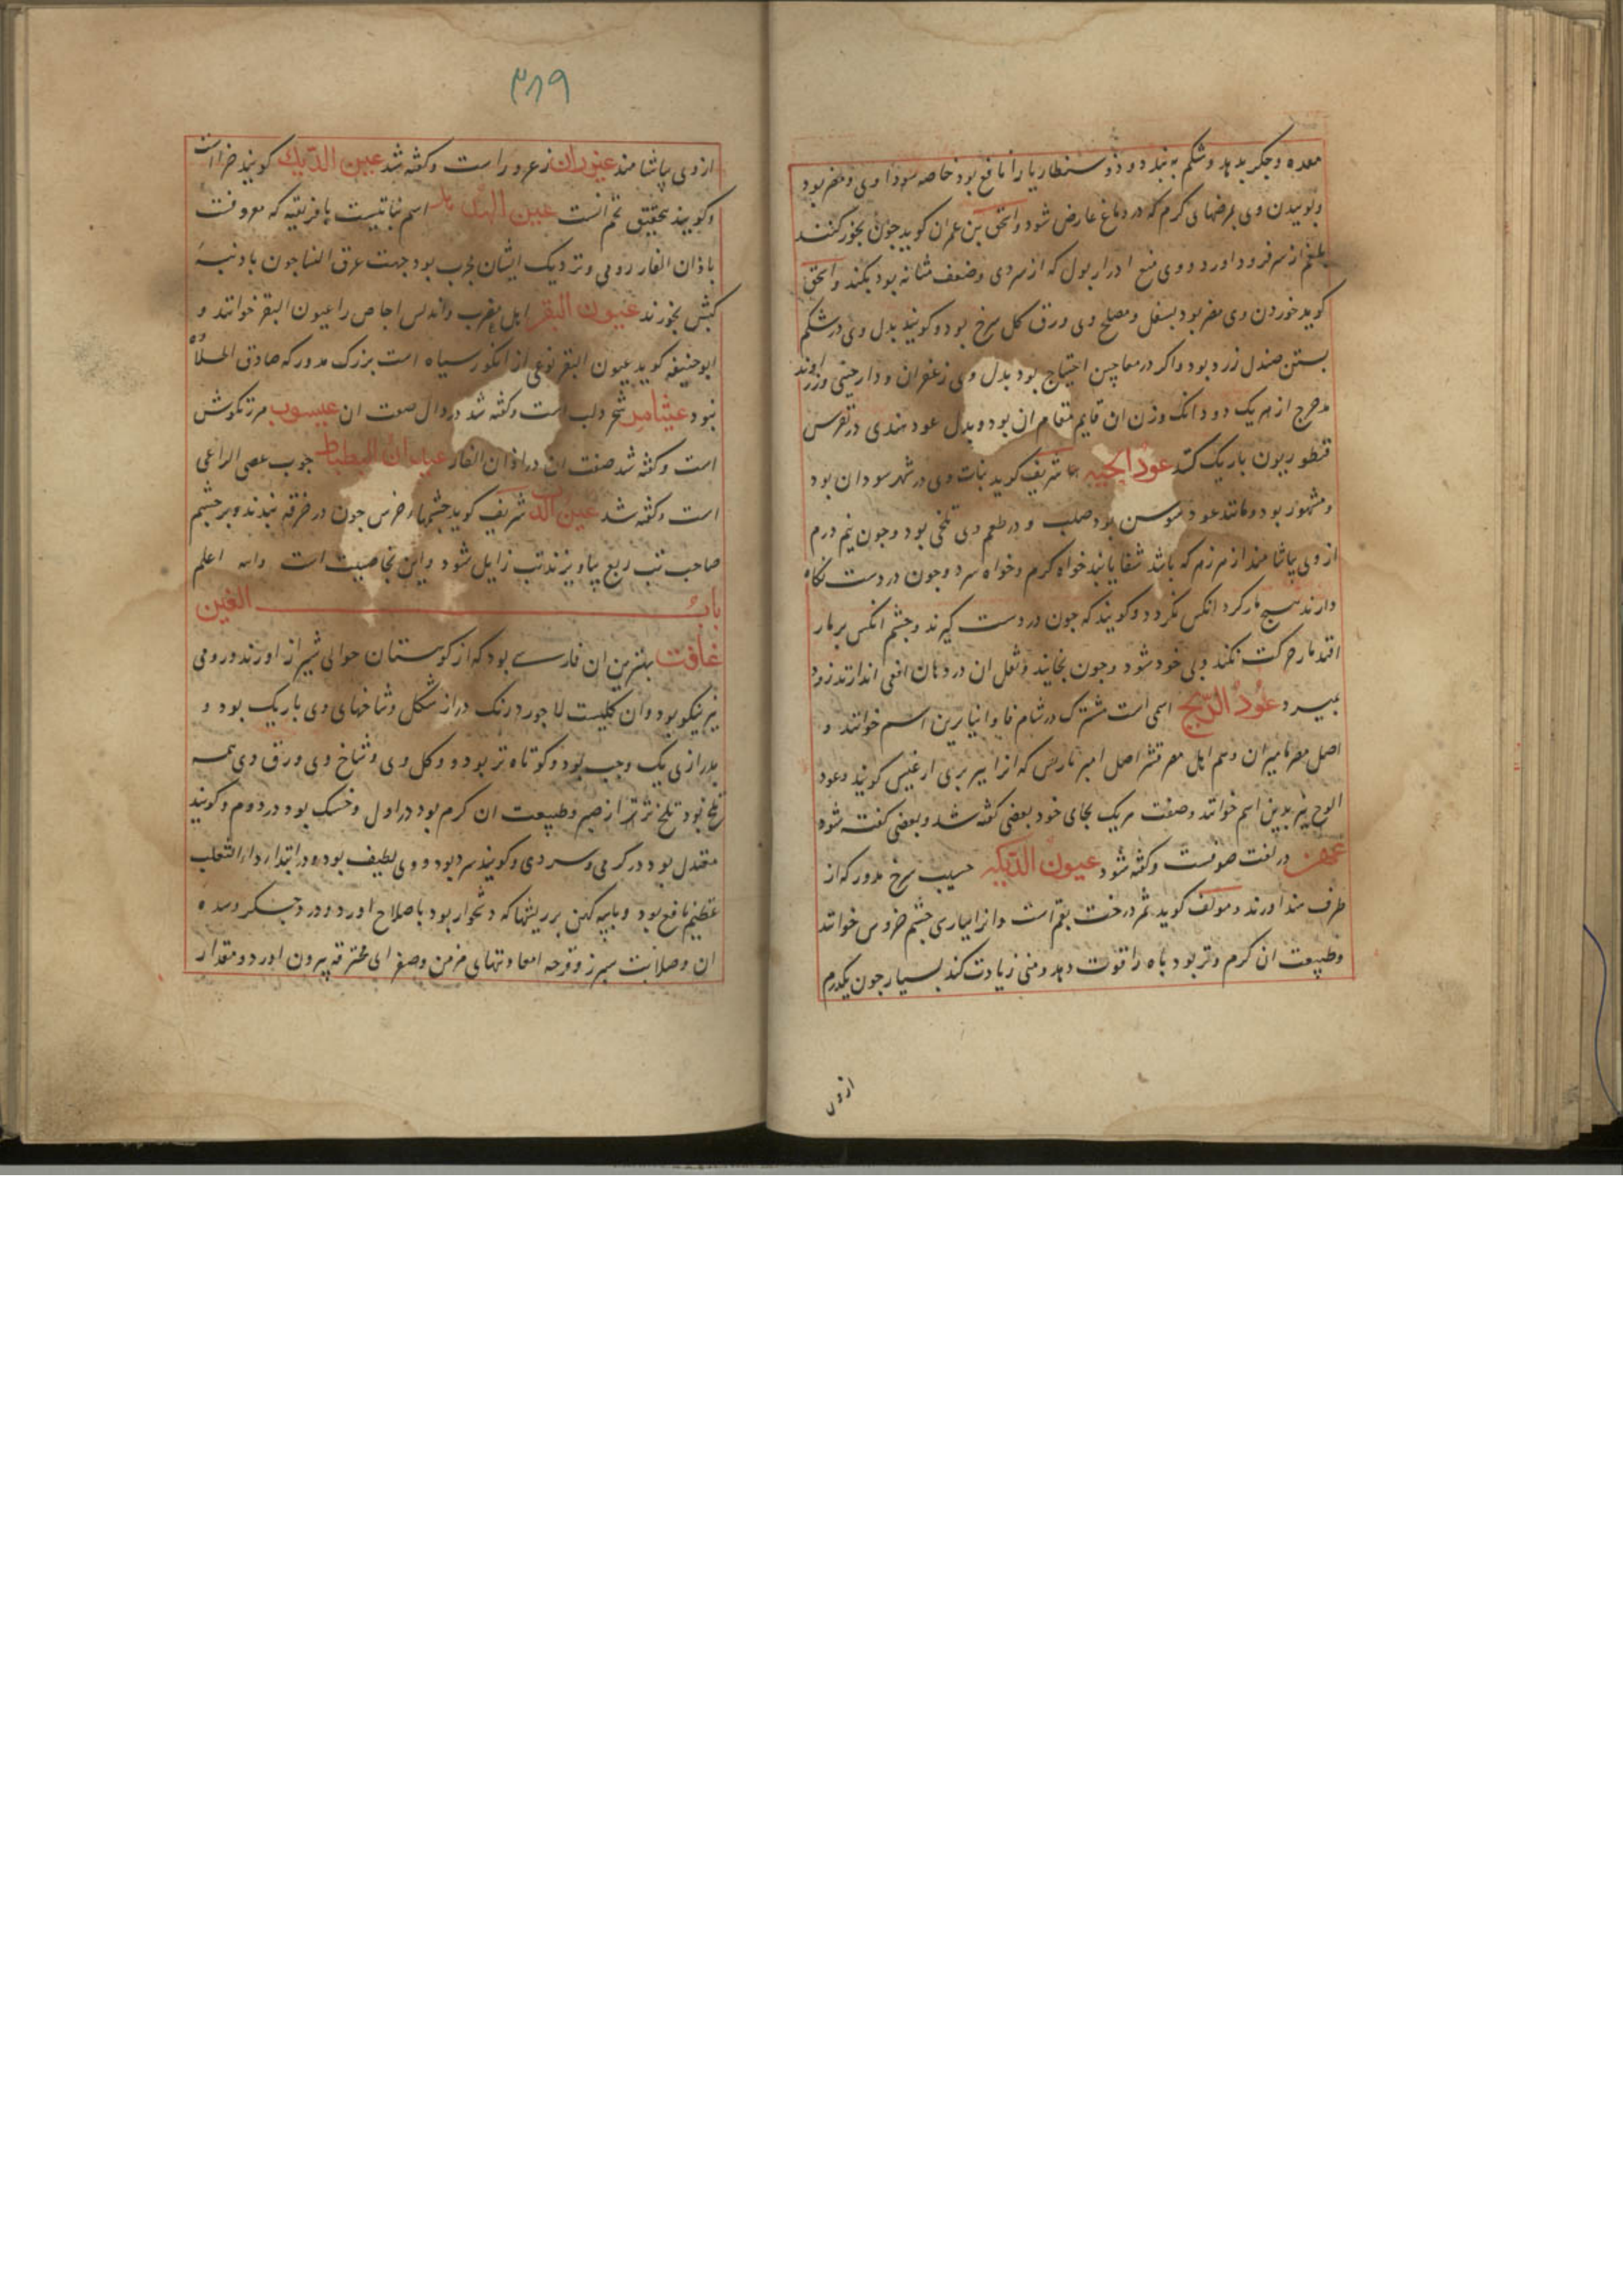 معده و جکر بدهد و شکم به بندد و ذوسنطاریا را نافع بود خاصه سوداوی و مضر بود
و بوییدن وی بمرضهای کرم که در دماغ عارض شود و اسحق بن عمران کوید جون بخور کنند
بلغم از سر فرود اورد و وی منع ادرار بول که از سردی و ضعف مثانه بود بکند و اسحق
کوید خوردن وی مضر بود بسفل و مصلح وی ورق کل سرخ بود و کویند بدل وی در شکم
بستن صندل زرد بود و اکر در معاجین احتیاج بود بدل وی زعفران و دارجینی و زراوند
مدحرج از هریک دو دانک وزن ان قایم مقام ان بود و بدل عود هندی در نقرس
قنطوریون باریک کنند عود الحیه شریف کوید نبات وی در شهر سودان بود
و مشهور بود و مانند عود سوسن بود صلب و در طعم وی تلخی بود و جون نیم درم
از وی بیاشامند از هر زهر که باشد شفا یابند خواه کرم و خواه سرد و جون در دست نکاه
دارند هیج مار کرد انکس نکردد و کویند که جون در دست کیرند و جشم انکس بر مار
افتد مار حرکت نکند و بی خود شود و جون بخایند و ثفل ان در دهان افعی اندازند زود
بمیرد عود الریح اسمی است مشترک در شام فاوانیا را بدین اسم خوانند و
اصل مصر مامیران و هم اهل مصر قشر اصل امبر باریس که انرا بربری ارغیس کویند و عود
الوج نیز بدین اسم خوانند و صفت هریک بجای خود بعضی کفته شد و بعضی کفته شود
عهن در لغت صوفست و کفته شود عیون الدیکه حبیست سرخ مدور که از
طرف هند اورند و مولف کوید ثمر درخت بقم است و انرا بپارسی جشم خروس خوانند
و طبیعت ان کرم و تر بود باه را قوت دهد و منی زیادت کند بسیار جون یکدرم
از وی
۳۸۹
از وی بیاشامند عیزران زعرور است و کفته شد عین الدیک کویند خراست
و کویند بحقیق تخم انست عین الهدهد اسم نباتیست بافریقیه که معروفست
باذان الفار رومی و نزدیک ایشان مجرب بود جهت عرق النسا جون با دنبه
کبش بخورند عیون البقر اهل مغرب و اندلس اجاص را عیون البقر خوانند و
ابو حنیفه کوید عیون البقر نوعی از انکور سیاه است بزرک مدور که صادق الحلاوه
نبود عیثام شجر دلب است و کفته شد در دال صفت ان عیسوب مرزنکوش
است و کفته شد صفت ان در اذان الفار عیدان البطباط جوب عصی الراعی
است و کفته شد عین شریف کوید جشمهاء خرس جون در خرقه بندند و بر جشم
صاحب تب ربع بیاویزند تب زایل شود و این بخاصیت است والله اعلم
باب الغین
غافت بهترین ان فارسی بود که از کوهستان حوالی شیراز اورند و رومی
نیز نیکو بود و ان کلیست لاجورد رنک دراز شکل و شاخهای وی باریک بود و
بدرازی یک وجب بود و کوتاه تر بود و کل وی و شاخ وی و ورق وی همه
تلخ بود تلخ تر از صبر و طبیعت ان کرم بود در اول و خشک بود در دوم و کویند
معتدل بود در کرمی و سردی و کویند سرد بود و وی لطیف بود و در ابتداء داء الثعلب
عظیم نافع بود و با پیه کهن بر ریشها که دشوار بود باصلاح اورد و درد جکر و سده
ان و صلابت سپرز و قرحه امعا و تبهای مزمن و صفرای محترقه بیرون اورد و مقدار